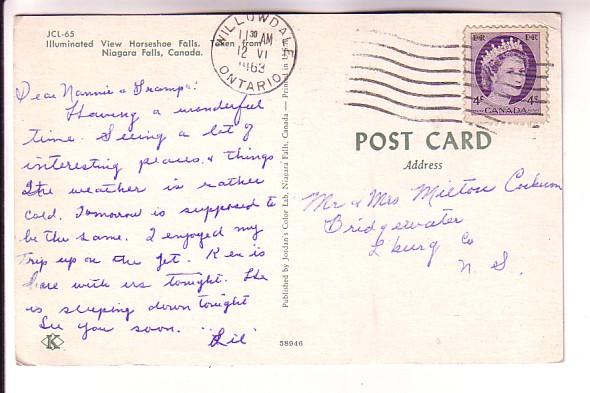 JCL-65
Illuminated View Horseshoe Falls. Taken from
Niagara Falls, Canada.
WILLOWDALE
11 30 AM
12 VI
1963
ONTARIO
E II R E II R
4¢ 4¢
CANADA
Dear Nannie & Gramps:
Having a wonderful
time. Seeing a lot of
interesting places & things
The weather is rather
cold. Tomorrow is supposed to
be the same. I enjoyed my
trip up on the jet. Ken is
here with us tonight. He
is sleeping down tonight
See you soon. "Lil"
K
Published by Jordan's Color Lab, Niagara Falls, Canada — Printed in
58946
POST CARD
Address
Mr & Mrs Milton
Bridgewater
L'burg Co
N. S.